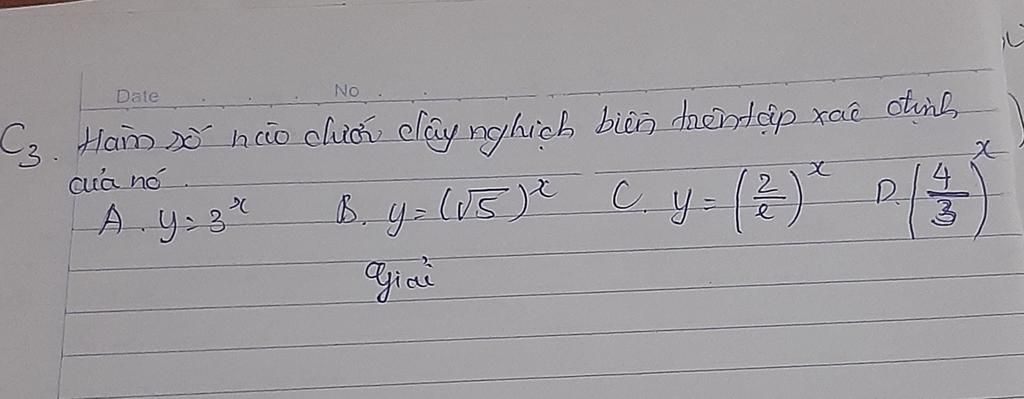 Date No
C3. Hàm số nào dưới đây nghịch biến trên tập xác định
của nó.
A. y = 3^x B. y = (√5)^x C. y = (2/e)^x D. (4/3)^x
Giải